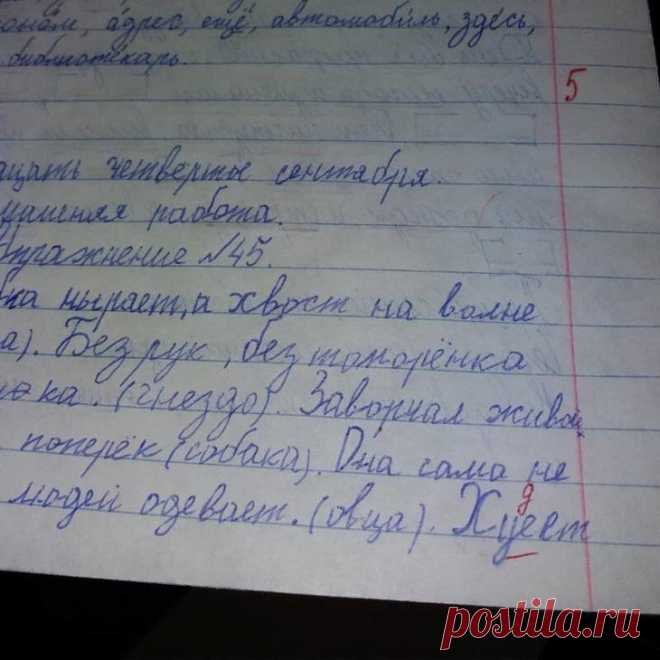 а́дрес, ещё, автомоби́ль, зде́сь,
библиоте́карь.
5
четвёртое сентября.
работа.
Упражнение №45.
ныряет, а хвост на волне
Без рук, без топорёнка
(гнездо). Заворчал живой
поперёк (собака). Она сама не
людей одевает. (овца). Хуеет
д
postila.ru